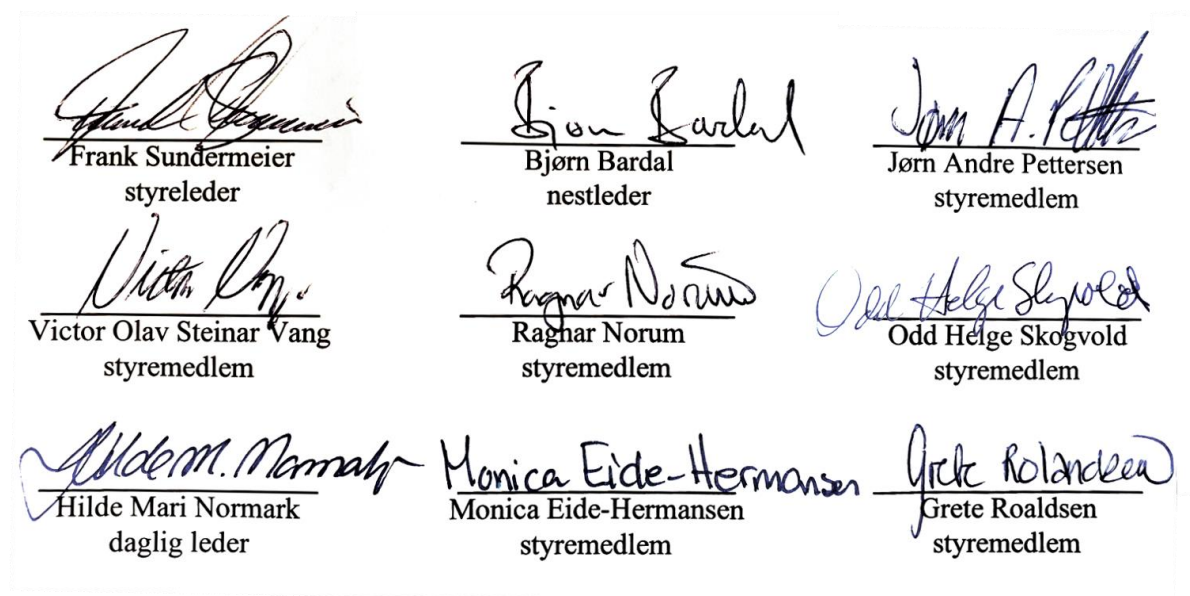 Frank Sundermeier
styreleder
Bjørn Bardal
Bjørn Bardal
nestleder
Jørn A.
Jørn Andre Pettersen
styremedlem
Victor Vang
Victor Olav Steinar Vang
styremedlem
Ragnar Norum
Ragnar Norum
styremedlem
Odd Helge Skogvold
Odd Helge Skogvold
styremedlem
Hilde M. Normark
Hilde Mari Normark
daglig leder
Monica Eide-Hermansen
Monica Eide-Hermansen
styremedlem
Grete
Grete Roaldsen
styremedlem